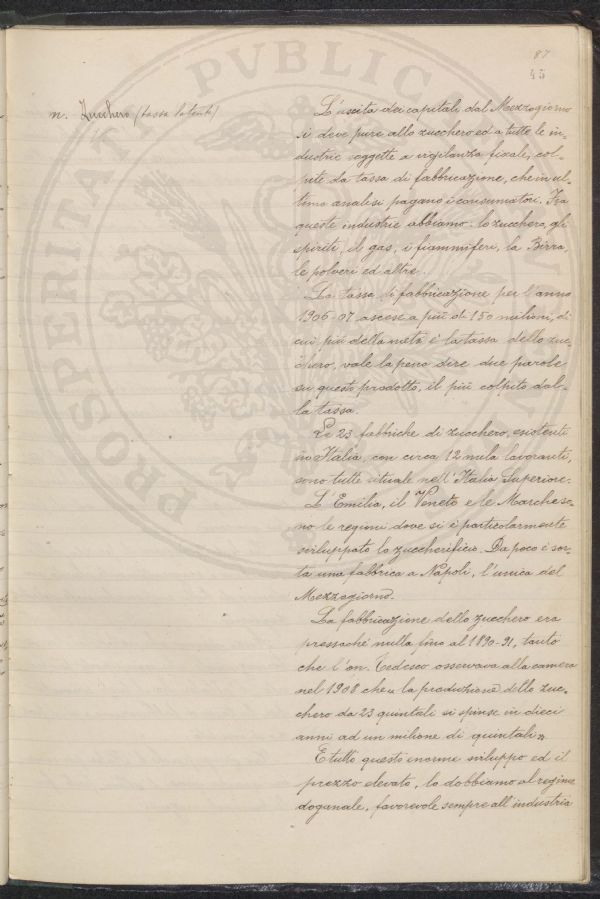 87
45
n. Zucchero (tassa latente)
L'uscita dei capitali dal Mezzogiorno
si deve pure allo zucchero ed a tutte le in-
dustrie soggette a vigilanza fiscale, col-
pite da tassa di fabbricazione, che in ul-
timo analisi pagano i consumatori. Fra
queste industrie abbiamo: lo zucchero, gli
spiriti, il gas, i fiammiferi, la Birra,
le polveri ed altre.
La tassa di fabbricazione per l'anno
1906-07 ascese a più di 150 milioni, di
cui più della metà è la tassa dello zuc-
chero, vale la pena dire due parole
su questo prodotto, il più colpito dal-
la tassa.
Le 23 fabbriche di zucchero, esistenti
in Italia, con circa 12 mila lavoranti,
sono tutte situate nell'Italia Superiore.
L'Emilia, il Veneto e le Marche so-
no le regioni dove si è particolarmente
sviluppato lo zuccherificio. Da poco è sor-
ta una fabbrica a Napoli, l'unica del
Mezzogiorno.
La fabbricazione dello zucchero era
pressoché nulla fino al 1890-91, tanto
che l'on. Tedesco osservava alla camera
nel 1908 che « la produzione dello zuc-
chero da 23 quintali si spinse in dieci
anni ad un milione di quintali ».
E tutto questo enorme sviluppo ed il
prezzo elevato, lo dobbiamo al regime
doganale, favorevole sempre all'industria
PROSPERITAT PVBLICA